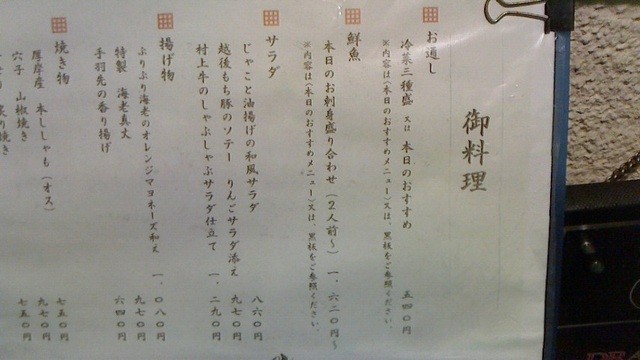 御料理
お通し
冷菜三種盛 又は 本日のおすすめ 五四〇円
※内容は(本日のおすすめメニュー)又は、黒板をご参照ください。
鮮魚
本日のお刺身盛り合わせ(2人前~) 一、六二〇円~
※内容は(本日のおすすめメニュー)又は、黒板をご参照ください。
サラダ
じゃこと油揚げの和風サラダ 八六〇円
越後もち豚のソテー りんごサラダ添え 九七〇円
村上牛のしゃぶしゃぶサラダ仕立て 一、二九〇円
揚げ物
ぷりぷり海老のオレンジマヨネーズ和え 一、〇八〇円
特製 海老真丈 九七〇円
手羽先の香り揚げ 六四〇円
焼き物
厚岸産 本ししゃも(オス) 七五〇円
穴子 山椒焼き 九七〇円
七五〇円